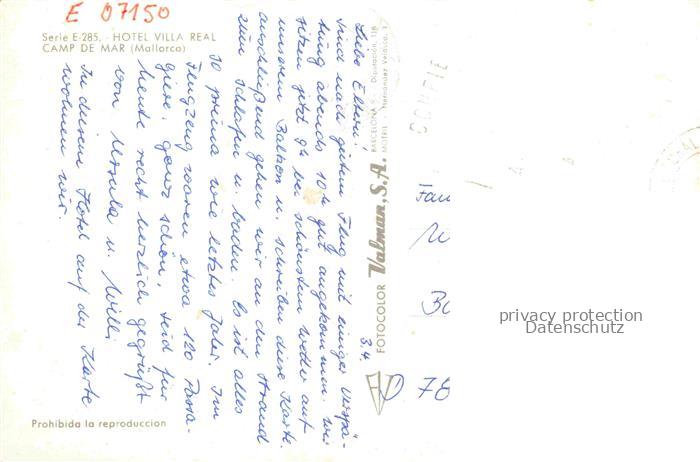 E 07150
Serie E-285. - HOTEL VILLA REAL
CAMP DE MAR (Mallorca)
Liebe Eltern!
Sind nach gutem Flug mit einiger Verspä-
tung abends 10 h gut angekommen. Wir
sitzen jetzt 9 h bei schönstem Wetter auf
unserem Balkon u. schreiben diese Karte.
anschließend gehen wir an den Strand
zum Schlafen u. baden. Es ist alles
so prima wie letztes Jahr. Im
Flugzeug waren etwa 120 Passa-
giere. ganz schön, seid für
heute recht herzlich gegrüßt
von Ursula u. Willi
In diesem Hotel auf der Karte
wohnen wir.
Prohibida la reproduccion
3.4.
FOTOCOLOR Valman, S.A.
BARCELONA - Diputación, 118
MOTRIL - Hernández Velasco,
Fam
D 78
privacy protection
Datenschutz